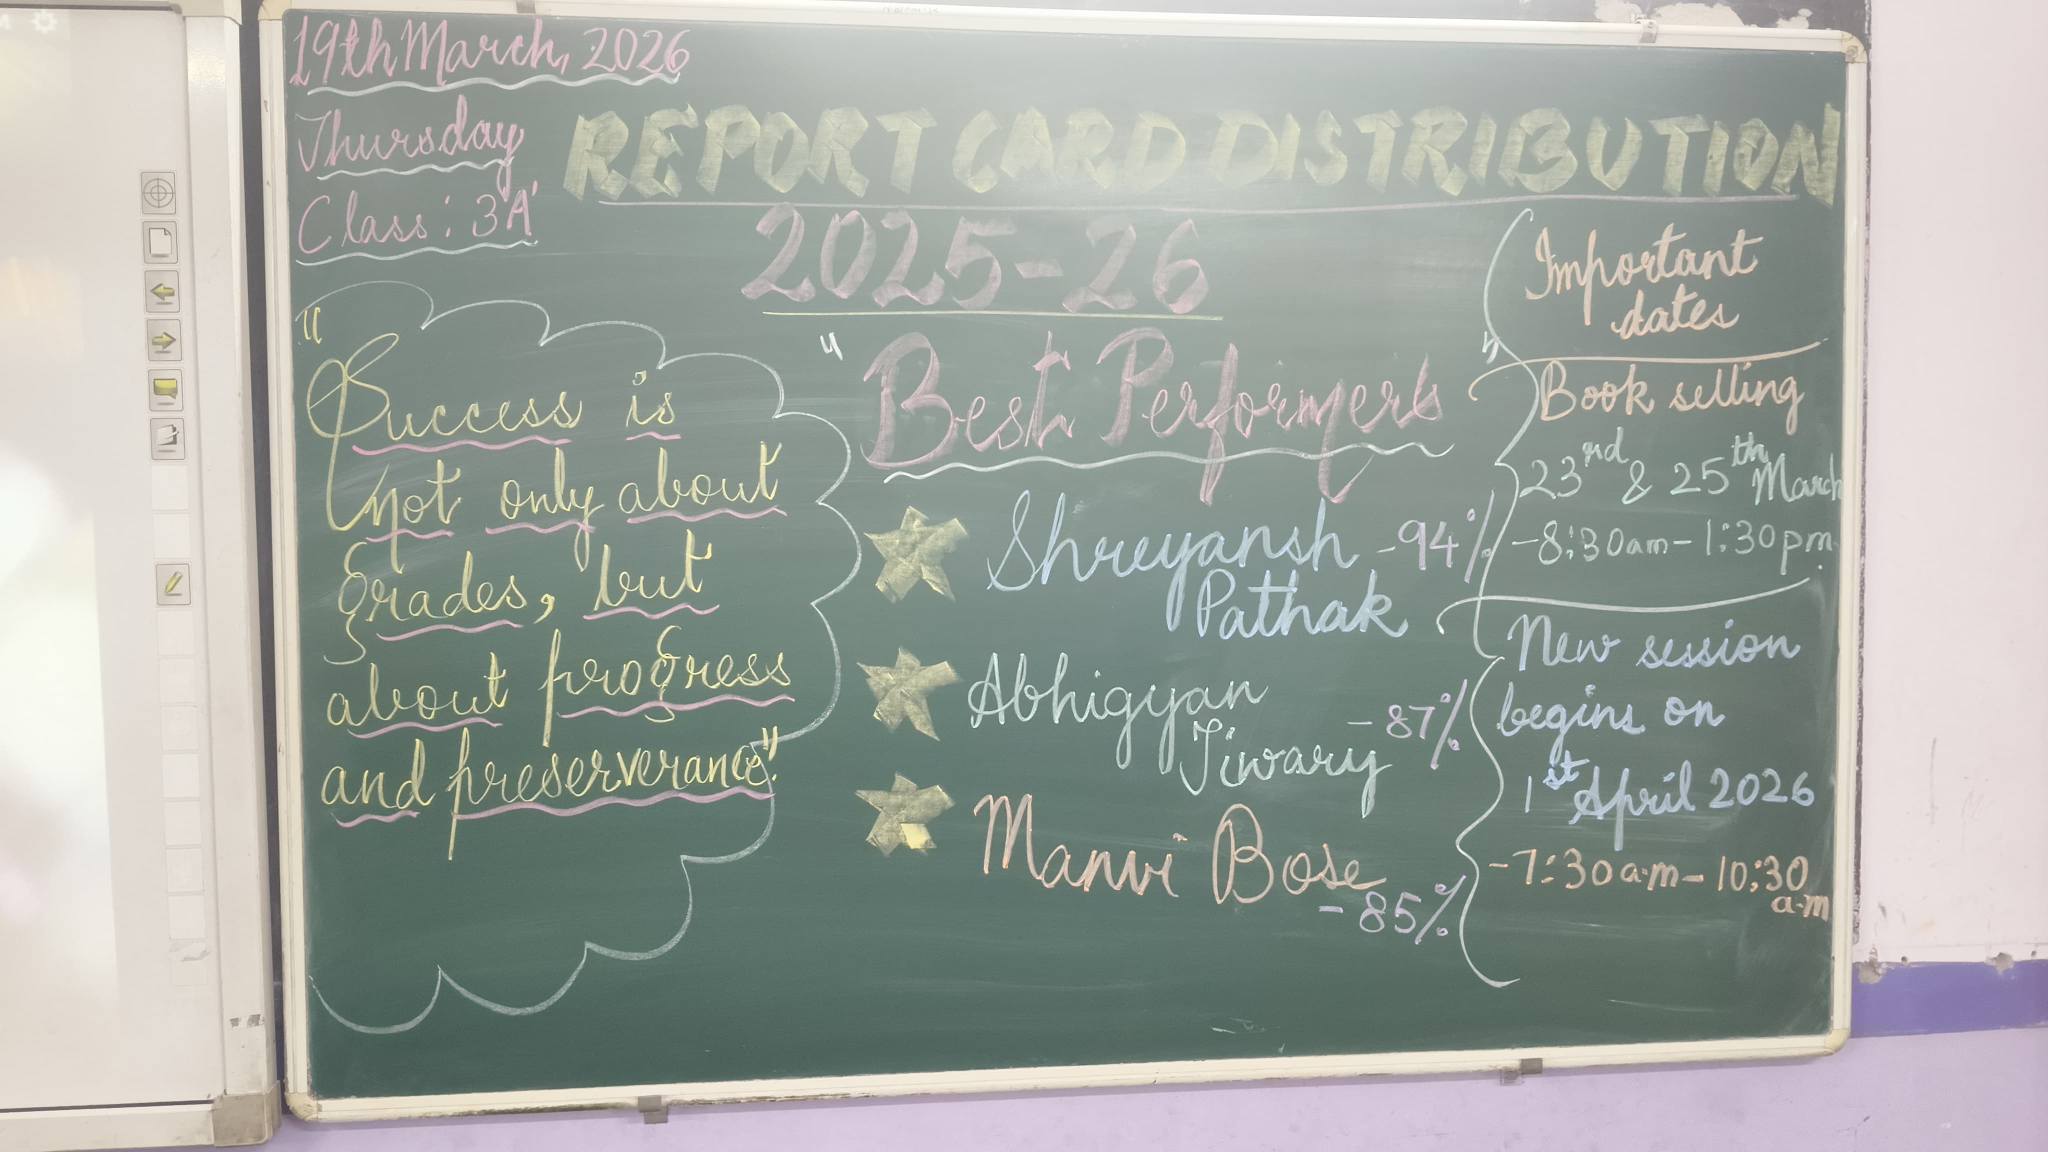 19th March, 2026
Thursday
Class: 3'A'
REPORT CARD DISTRIBUTION
2025-26
"Success is
not only about
grades, but
about progress
and preserverance".
"Best Performers"
Shreyansh - 94%
Pathak
Abhigyan
Tiwary - 87%
Manvi Bose
- 85%
Important
dates
Book selling
23rd & 25th March
- 8:30am - 1:30pm.
New session
begins on
1st April 2026
- 7:30 a.m - 10:30
a.m